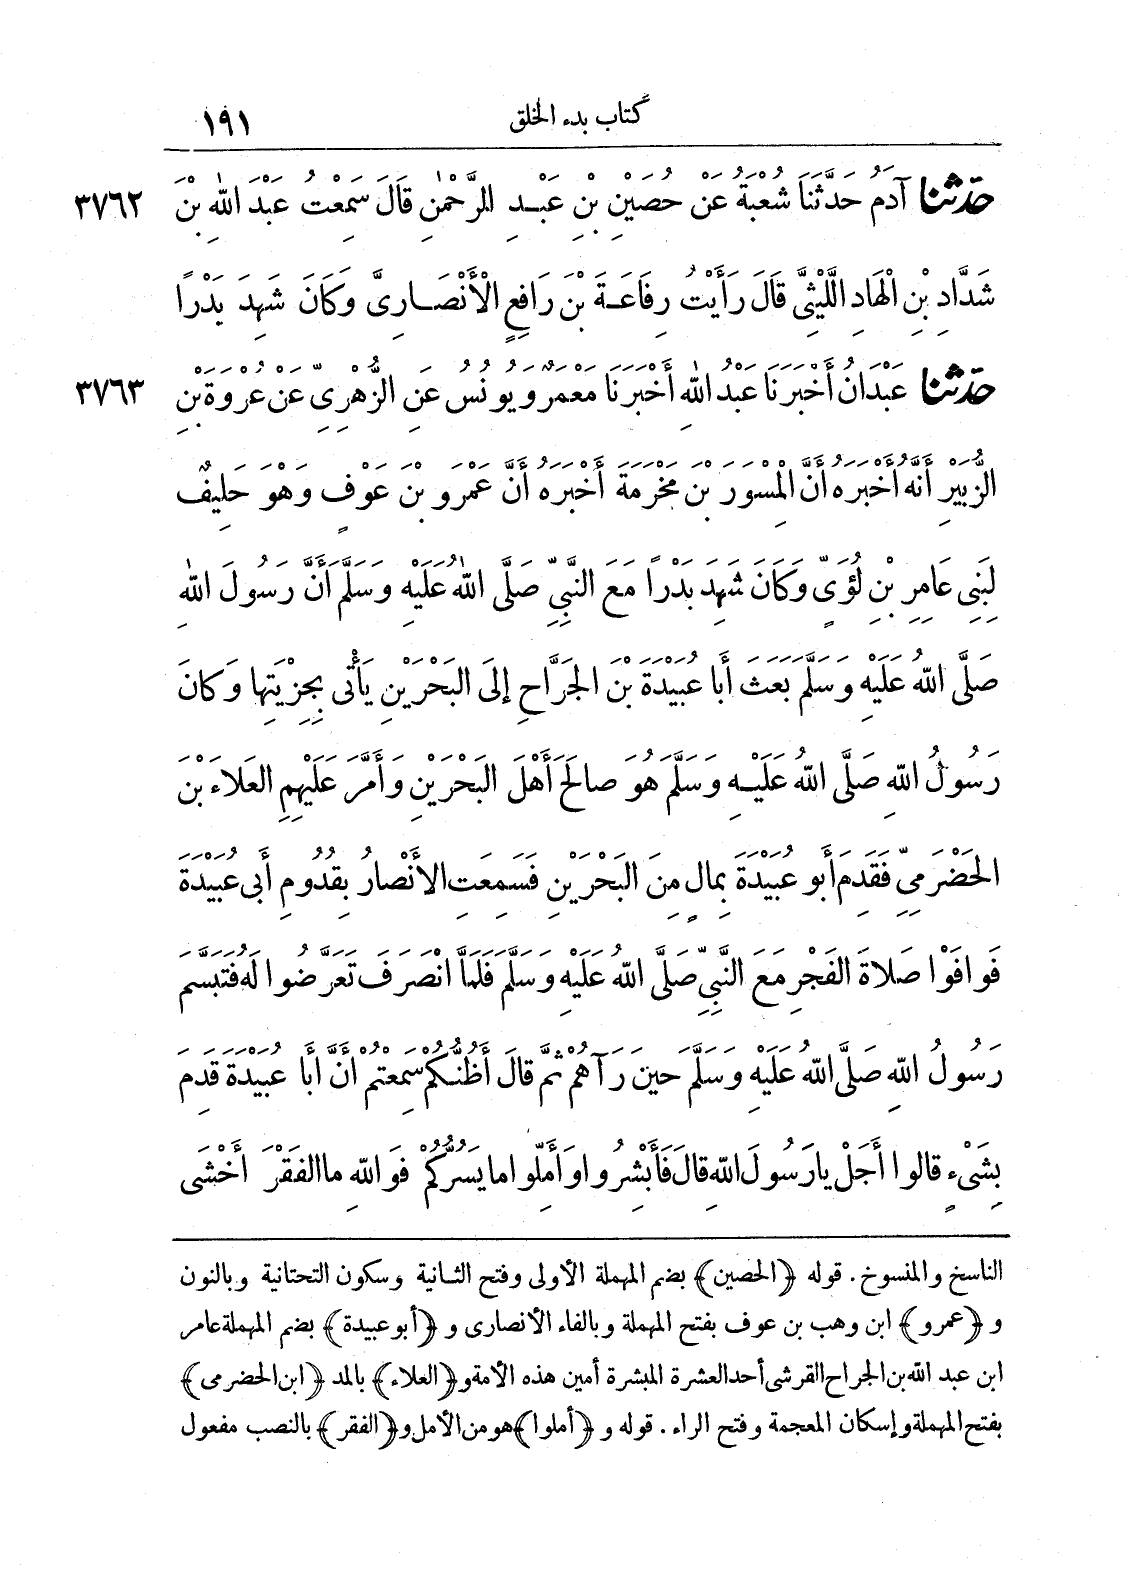 كتاب بدء الخلق ١٩١
حَدَّثَنَا آدَمُ حَدَّثَنَا شُعْبَةُ عَنْ حُصَيْنِ بْنِ عَبْدِ الرَّحْمٰنِ قَالَ سَمِعْتُ عَبْدَ اللهِ بْنَ ٣٧٦٢
شَدَّادِ بْنِ الْهَادِ اللَّيْثِيَّ قَالَ رَأَيْتُ رِفَاعَةَ بْنَ رَافِعٍ الْأَنْصَارِيَّ وَكَانَ شَهِدَ بَدْرًا
حَدَّثَنَا عَبْدَانُ أَخْبَرَنَا عَبْدُ اللهِ أَخْبَرَنَا مَعْمَرٌ وَيُونُسُ عَنِ الزُّهْرِيِّ عَنْ عُرْوَةَ بْنِ ٣٧٦٣
الزُّبَيْرِ أَنَّهُ أَخْبَرَهُ أَنَّ الْمِسْوَرَ بْنَ مَخْرَمَةَ أَخْبَرَهُ أَنَّ عَمْرَو بْنَ عَوْفٍ وَهْوَ حَلِيفٌ
لِبَنِي عَامِرِ بْنِ لُؤَيٍّ وَكَانَ شَهِدَ بَدْرًا مَعَ النَّبِيِّ صَلَّى اللهُ عَلَيْهِ وَسَلَّمَ أَنَّ رَسُولَ اللهِ
صَلَّى اللهُ عَلَيْهِ وَسَلَّمَ بَعَثَ أَبَا عُبَيْدَةَ بْنَ الْجَرَّاحِ إِلَى الْبَحْرَيْنِ يَأْتِي بِجِزْيَتِهَا وَكَانَ
رَسُولُ اللهِ صَلَّى اللهُ عَلَيْهِ وَسَلَّمَ هُوَ صَالَحَ أَهْلَ الْبَحْرَيْنِ وَأَمَّرَ عَلَيْهِمِ الْعَلَاءَ بْنَ
الْحَضْرَمِيِّ فَقَدِمَ أَبُو عُبَيْدَةَ بِمَالٍ مِنَ الْبَحْرَيْنِ فَسَمِعَتِ الْأَنْصَارُ بِقُدُومِ أَبِي عُبَيْدَةَ
فَوَافَوْا صَلَاةَ الْفَجْرِ مَعَ النَّبِيِّ صَلَّى اللهُ عَلَيْهِ وَسَلَّمَ فَلَمَّا انْصَرَفَ تَعَرَّضُوا لَهُ فَتَبَسَّمَ
رَسُولُ اللهِ صَلَّى اللهُ عَلَيْهِ وَسَلَّمَ حِينَ رَآهُمْ ثُمَّ قَالَ أَظُنُّكُمْ سَمِعْتُمْ أَنَّ أَبَا عُبَيْدَةَ قَدِمَ
بِشَيْءٍ قَالُوا أَجَلْ يَا رَسُولَ اللهِ قَالَ فَأَبْشِرُوا وَأَمِّلُوا مَا يَسُرُّكُمْ فَوَاللهِ مَا الْفَقْرَ أَخْشَى
الناسخ والمنسوخ. قوله ﴿الحصين﴾ بضم المهملة الأولى وفتح الثانية وسكون التحتانية وبالنون
و ﴿عمرو﴾ ابن وهب بن عوف بفتح المهملة وبالفاء الأنصارى و ﴿أبو عبيدة﴾ بضم المهملة عامر
ابن عبد الله بن الجراح القرشى أحد العشرة المبشرة أمين هذه الأمة و﴿العلاء﴾ بالمد ﴿ابن الحضرمى﴾
بفتح المهملة وإسكان المعجمة وفتح الراء. قوله و ﴿أملوا﴾ هو من الأمل و﴿الفقر﴾ بالنصب مفعول